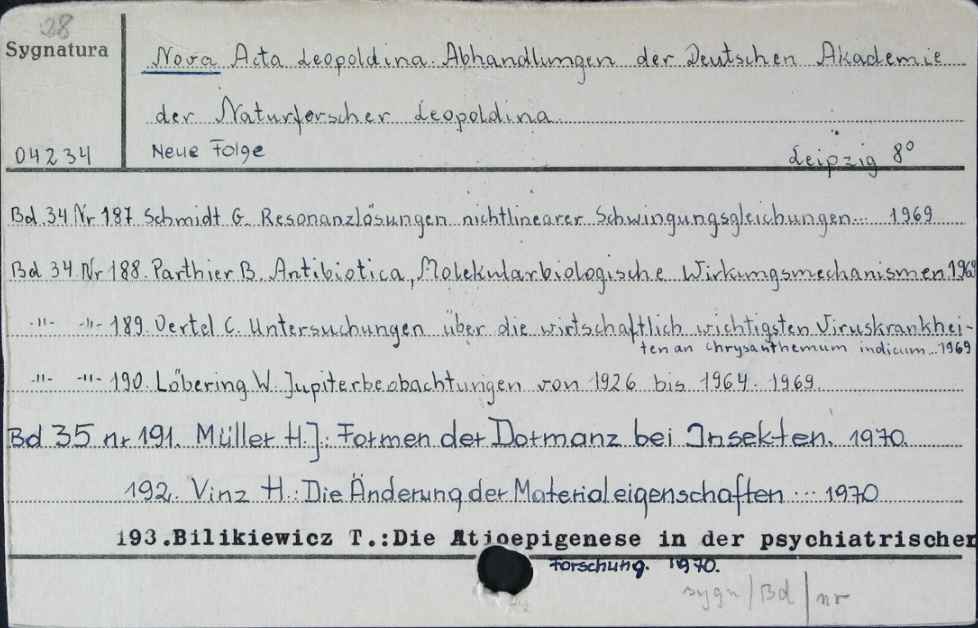 28
Sygnatura
Nova Acta Leopoldina. Abhandlungen der Deutschen Akademie
der Naturforscher Leopoldina.
04234 Neue Folge Leipzig 8°
Bd.34 Nr 187. Schmidt G. Resonanzlösungen nichtlinearer Schwingungsgleichungen... 1969
Bd 34. Nr 188. Parthier B. Antibiotica, Molekularbiologische Wirkungsmechanismen 1969
-"- -"- 189. Oertel C. Untersuchungen über die wirtschaftlich wichtigsten Viruskrankhei-
ten an Chrysanthemum indicum...1969
-"- -"- 190. Löbering W. Jupiterbeobachtungen von 1926 bis 1964. 1969
Bd 35 nr 191. Müller H.J.: Formen der Dormanz bei Insekten. 1970.
192. Vinz H.: Die Änderung der Materialeigenschaften ... 1970
193.Bilikiewicz T.:Die Atioepigenese in der psychiatrischen
Forschung. 1970.
sygn/Bd/nr